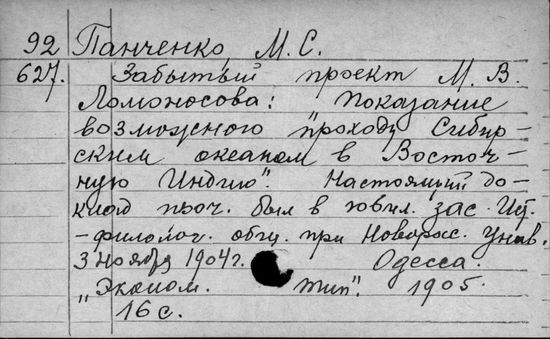 92 Панченко, М. С.
627. Забытый проект М. В.
Ломоносова: „Показание
возможного прохода Сибир-
ским океаном в Восточ-
ную Индию". Настоящий до-
клад проч. был в ювил. зас. Ист.
-филолог. общ. при Новорос. Унив.
3 ноября 1904 г. Одесса.
„Эконом. тип". 1905.
16 с.